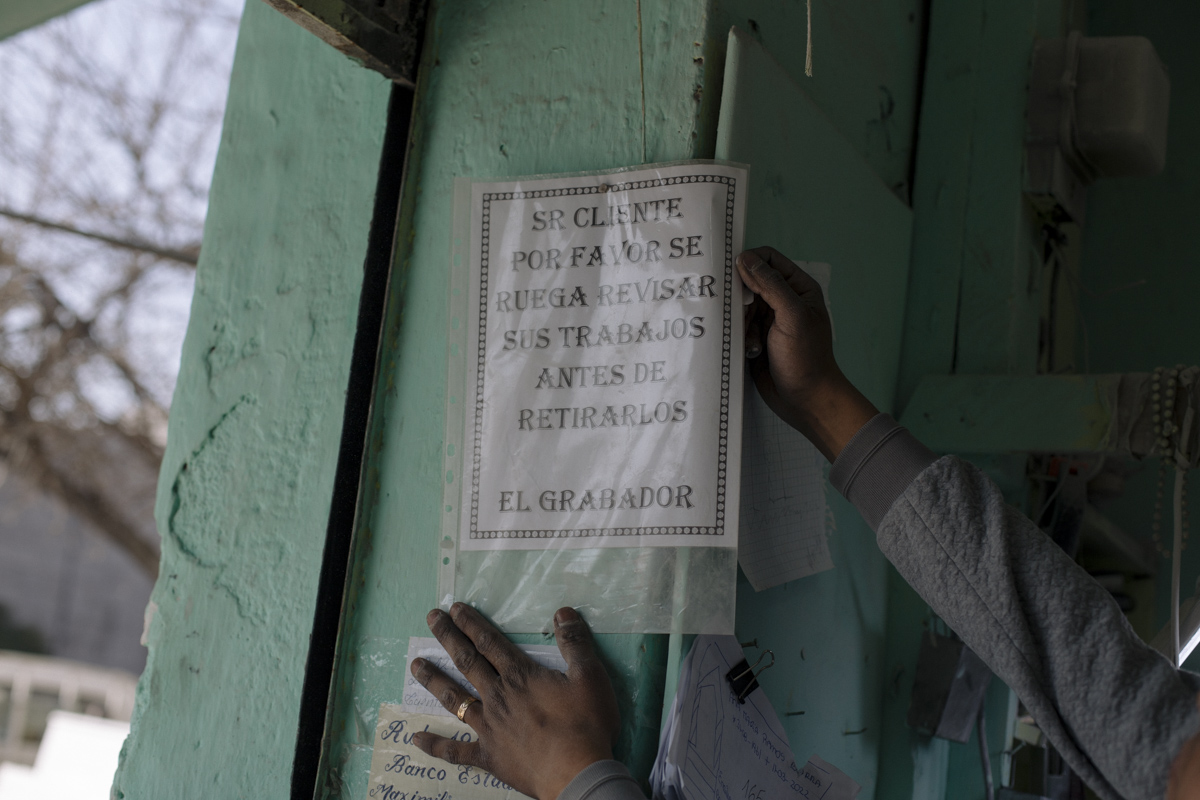 SR CLIENTE
POR FAVOR SE
RUEGA REVISAR
SUS TRABAJOS
ANTES DE
RETIRARLOS
EL GRABADOR
Banco